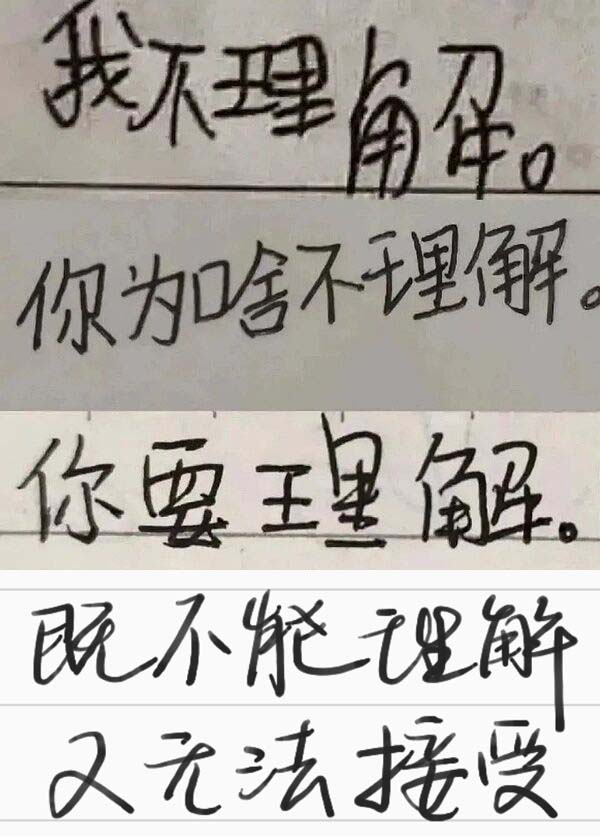 我不理解。
你为啥不理解。
你要理解。
既不能理解
又无法接受